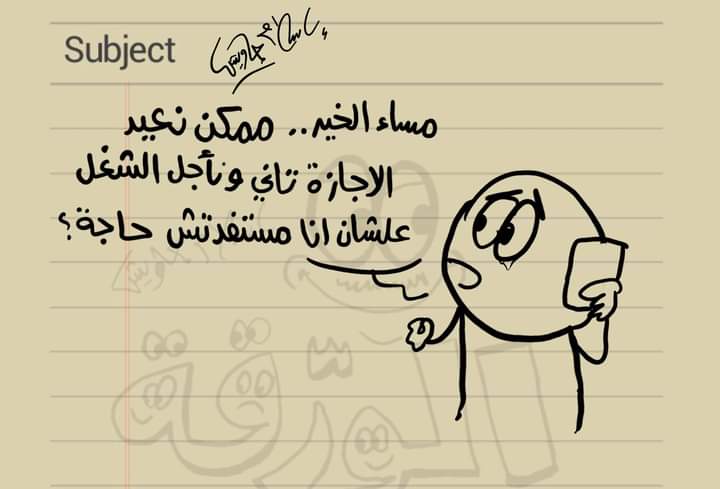 Subject
مساء الخير.. ممكن نعيد
الاجازة تاني ونأجل الشغل
علشان انا مستفدتش حاجة؟
الورقة